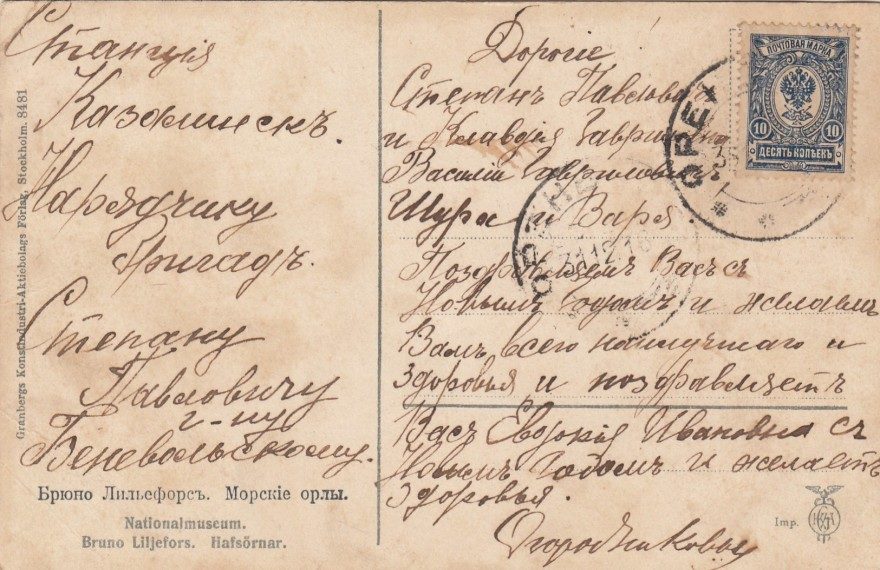 Станція
Казалинскъ.
Нарядчику
Бригадъ.
Степану
Павловичу
г-ну
Беневольскому.
Брюно Лильефорсъ. Морскіе орлы.
Nationalmuseum.
Bruno Liljefors. Hafsörnar.
Granbergs Konstindustri-Aktiebolags Förlag, Stockholm. 8481
Дорогіе
Степанъ Павлов
и Клавдія Гаври
Василій Гаврилович
Шура и Варя
Поздравляемъ Васъ съ
Новымъ Годомъ и желаемъ
Вамъ всего наилучшаго и
Здоровья и поздравляетъ
Васъ Евдокія Ивановна съ
Новымъ Годомъ и желаетъ
Здоровья.
Огородниковы
ПОЧТОВАЯ МАРКА
10 10
ДЕСЯТЬ КОПѢЕКЪ
31.12.1
Imp.